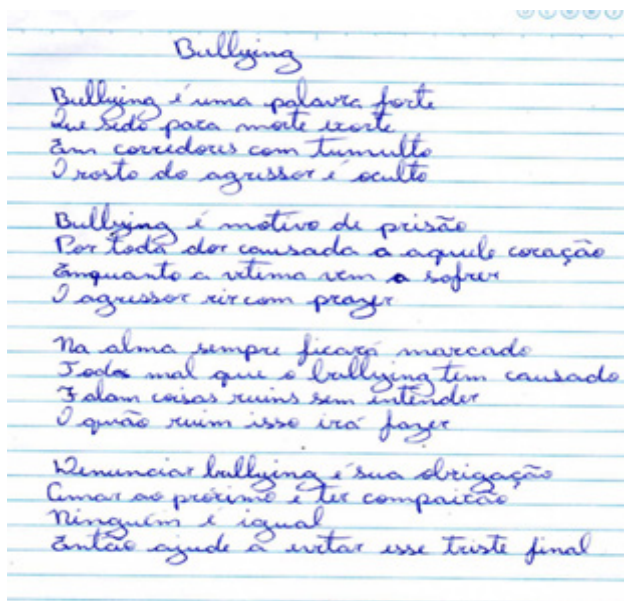 Bullying
Bullying é uma palavra forte
Que pode para morte
Em corredores com tumulto
O rosto do agressor é oculto
Bullying é motivo de prisão
Por toda dor causada a aquele coração
Emquanto a vitima vem a sofrer
O agressor rir com prazer
Na alma sempre ficará marcado
Todo mal que o bullying tem causado
Falam coisas ruins sem intender
O quão ruim isso irá fazer
Denunciar bullying é sua obrigação
Amar ao próximo é ter compaixão
Ninguém é igual
Então ajude a evitar esse triste final